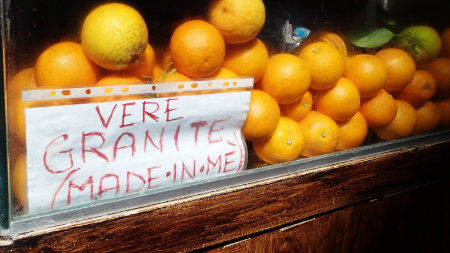 VERE
GRANITE
(MADE·IN·MÈ)